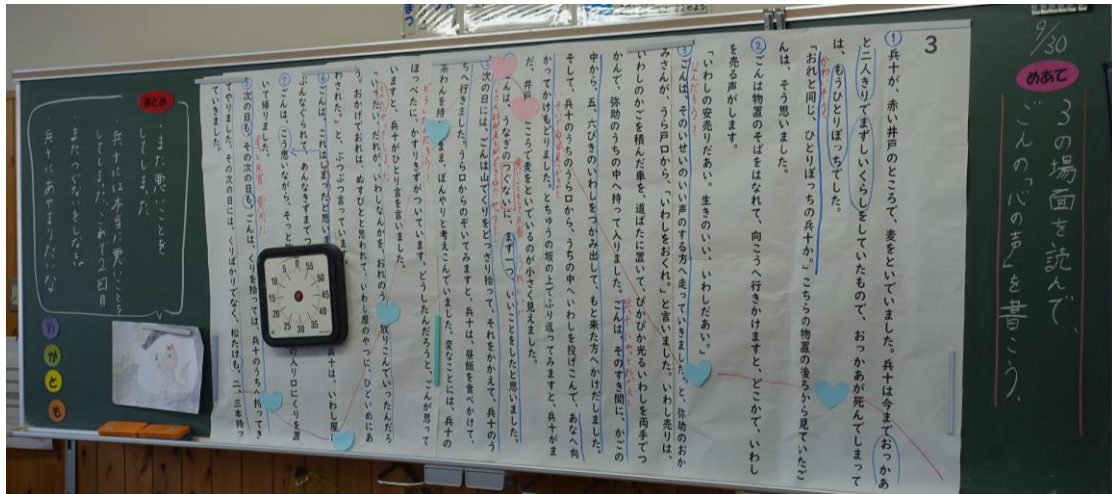 9/30
めあて
3の場面を読んで、
ごんの「心の声」を書こう。
3
① 兵十が、赤い井戸のところで、麦をといでいました。兵十は今までおっかあ
と二人きりでまずしいくらしをしていたもので、おっかあが死んでしまって
は、もうひとりぼっちでした。
「おれと同じ、ひとりぼっちの兵十か。」こちらの物置の後ろから見ていたご
んは、そう思いました。
② ごんは物置のそばをはなれて、向こうへ行きかけますと、どこかで、いわし
を売る声がします。
「いわしの安売りだあい。生きのいい、いわしだあい。」
③ ごんは、そのいせいのいい声のする方へ走っていきました。と、弥助のおか
みさんが、うら戸口から、「いわしをおくれ。」と言いました。いわし売りは、
いわしのかごを積んだ車を、道ばたに置いて、ぴかぴか光るいわしを両手でつ
かんで、弥助のうちの中へ持って入りました。ごんは、そのすき間に、かごの
中から、五、六ぴきのいわしをつかみ出して、もと来た方へかけだしました。
そして、兵十のうちのうら口から、うちの中へいわしを投げこんで、あなへ向
かってかけもどりました。とちゅうの坂の上でふり返ってみますと、兵十がま
だ、井戸のところで麦をといでいるのが小さく見えました。
ごんは、うなぎのつぐないに、まず一つ、いいことをしたと思いました。
次の日には、ごんは山でくりをどっさり拾って、それをかかえて、兵十のう
ちへ行きました。うら口からのぞいてみますと、兵十は、昼飯を食べかけて、
茶わんを持ったまま、ぼんやりと考えこんでいました。変なことには、兵十の
ほっぺたに、かすりきずがついています。どうしたんだろうと、ごんが思って
いますと、兵十がひとり言を言いました。
「いったい、だれが、いわしなんかを、おれのうちへ放りこんでいったんだろ
う。おかげでおれは、ぬすびとと思われて、いわし屋のやつに、ひどいめにあ
わされた。」と、ぶつぶつ言っています。
⑥ ごんは、これはしまったと思い 兵十は、いわし屋に
ぶんなぐられて、あんなきずまで
⑦ ごんは、こう思いながら、そっと の入り口にくりを置
いて帰りました。
次の日も、その次の日も、ごんは、くりを拾っては、兵十のうちへ持ってき
てやりました。その次の日には、くりばかりでなく、松たけも、二、三本持っ
ていきました。
55
50
45
40
35
30
25
20
15
10
5
0
まとめ
・また悪いことを
してしまった。
兵十には本当に悪いことを
してしまった。これで2回目
またつぐないをしなきゃ
・兵十にあやまりたいな
わ
が
と
も